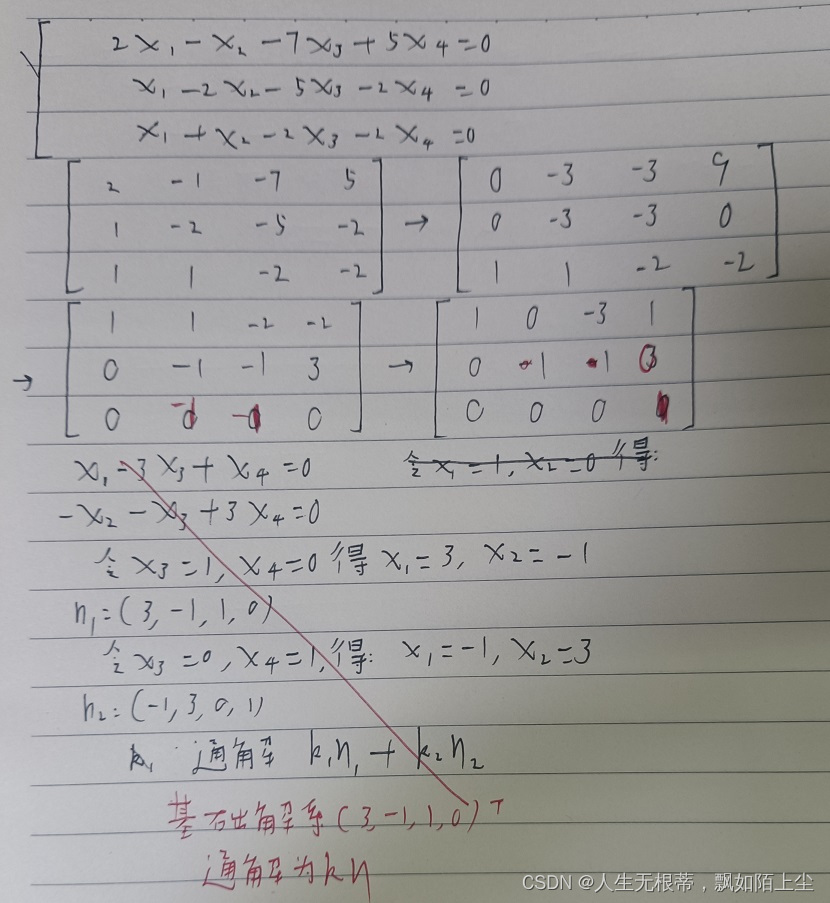 2x₁-x₂-7x₃+5x₄=0
x₁-2x₂-5x₃-2x₄=0
x₁+x₂-2x₃-2x₄=0
2 -1 -7 5 → 0 -3 -3 9
1 -2 -5 -2 0 -3 -3 0
1 1 -2 -2 1 1 -2 -2
→ 1 1 -2 -2 → 1 0 -3 1
0 -1 -1 3 0 -1 -1 3
0 0 0 0 0 0
x₁-3x₃+x₄=0 令x₁=1,x₂=0得:
-x₂-x₃+3x₄=0
令x₃=1,x₄=0得x₁=3,x₂=-1
η₁=(3,-1,1,0)
令x₃=0,x₄=1,得:x₁=-1,x₂=3
η₂=(-1,3,0,1)
k₁通解 k₁η₁+k₂η₂
基础解系(3,-1,1,0)ᵀ
通解为kη
CSDN @人生无根蒂，飘如陌上尘